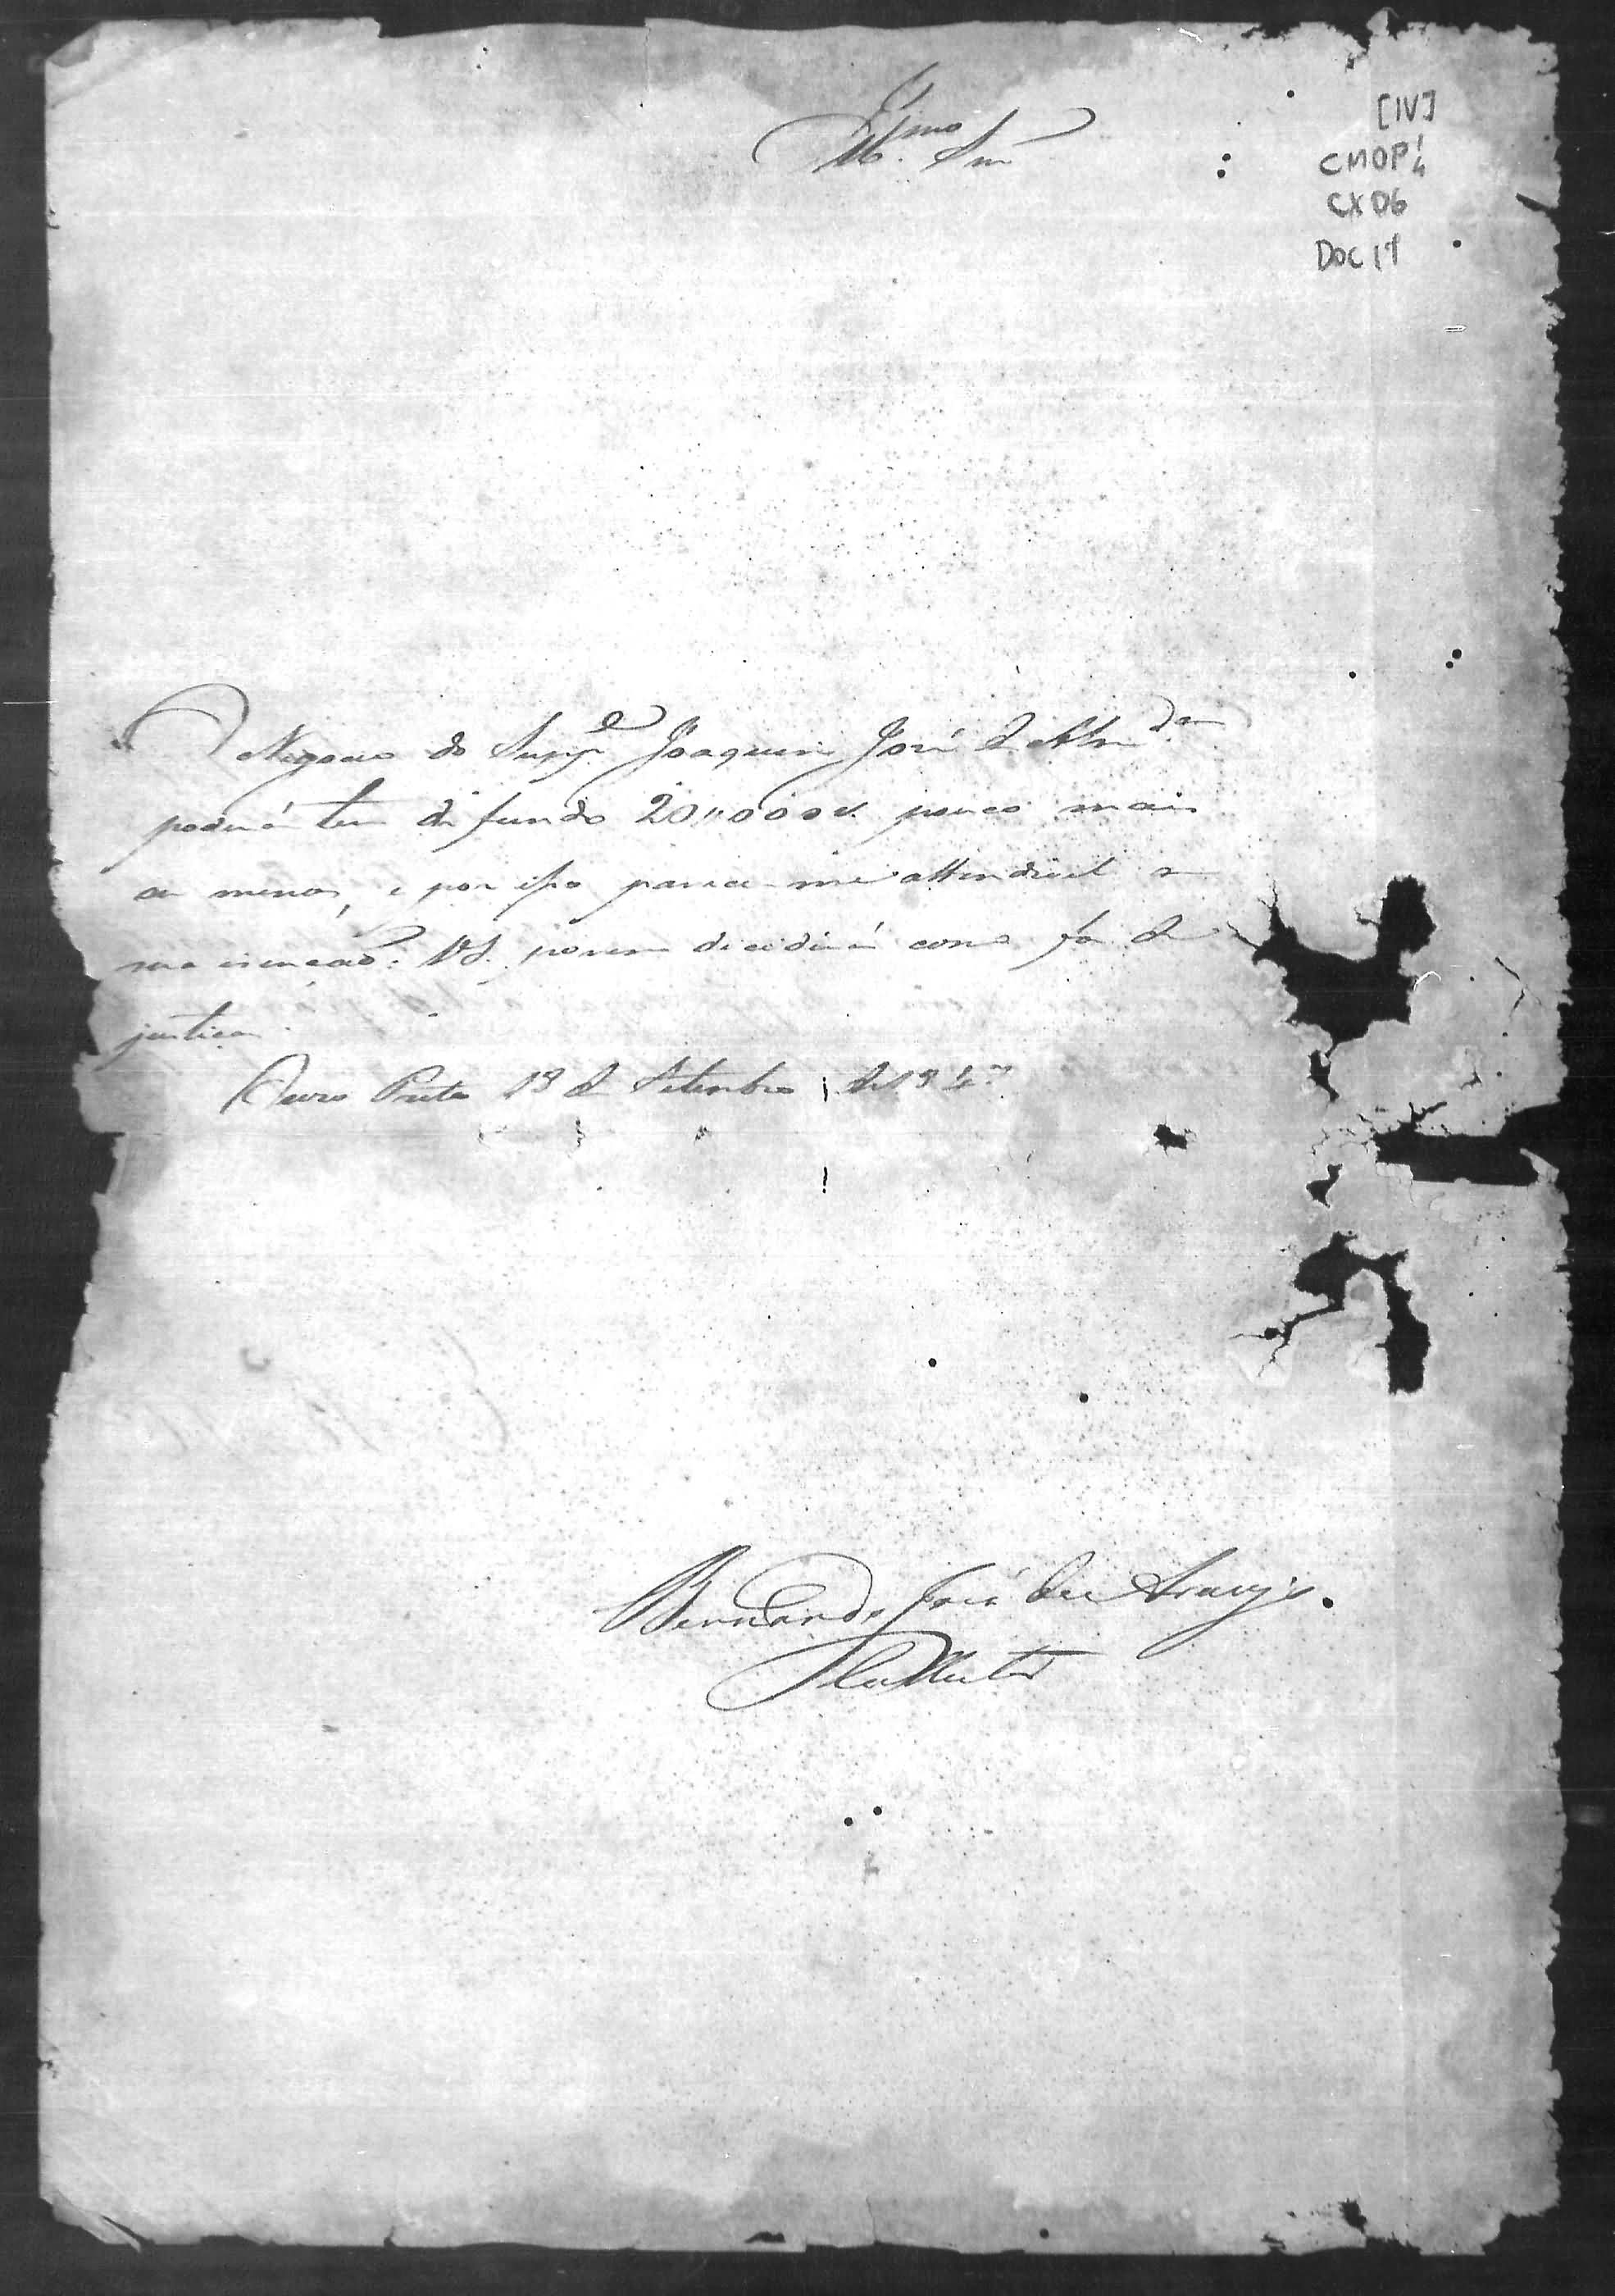 Illmo. Snr
[IV]
CMOP 1/4
CX 06
DOC 19
O Negocio do Suppe. Joaquim José d'Almda
poderá ter de fundo 20"000rs. pouco mais
ou menos, e por isso parece-me attendivel a
sua isenção: VS. porem decidirá como for de
justiça.
Ouro Preto 19 de Setembro de
Bernardo José de Araujo